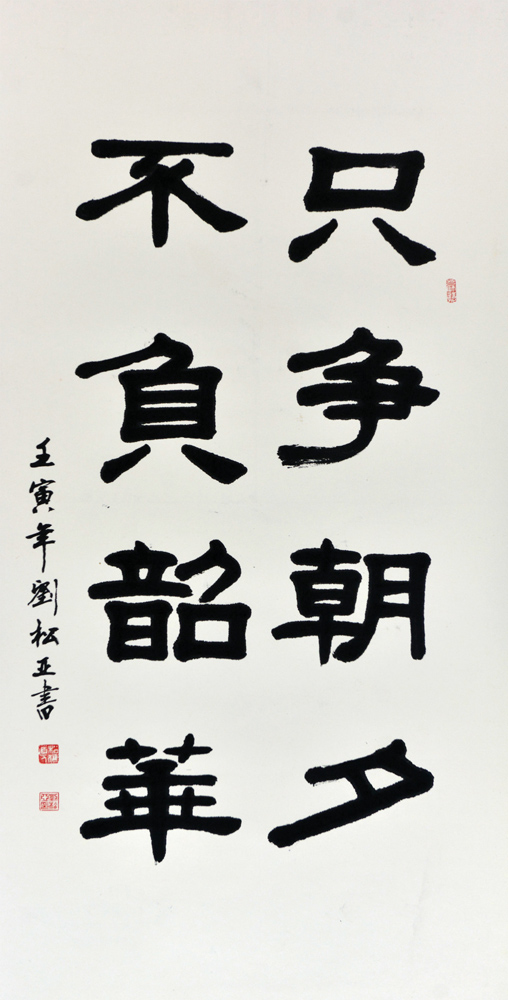 只争朝夕
不負韶華
壬寅年劉松亚書